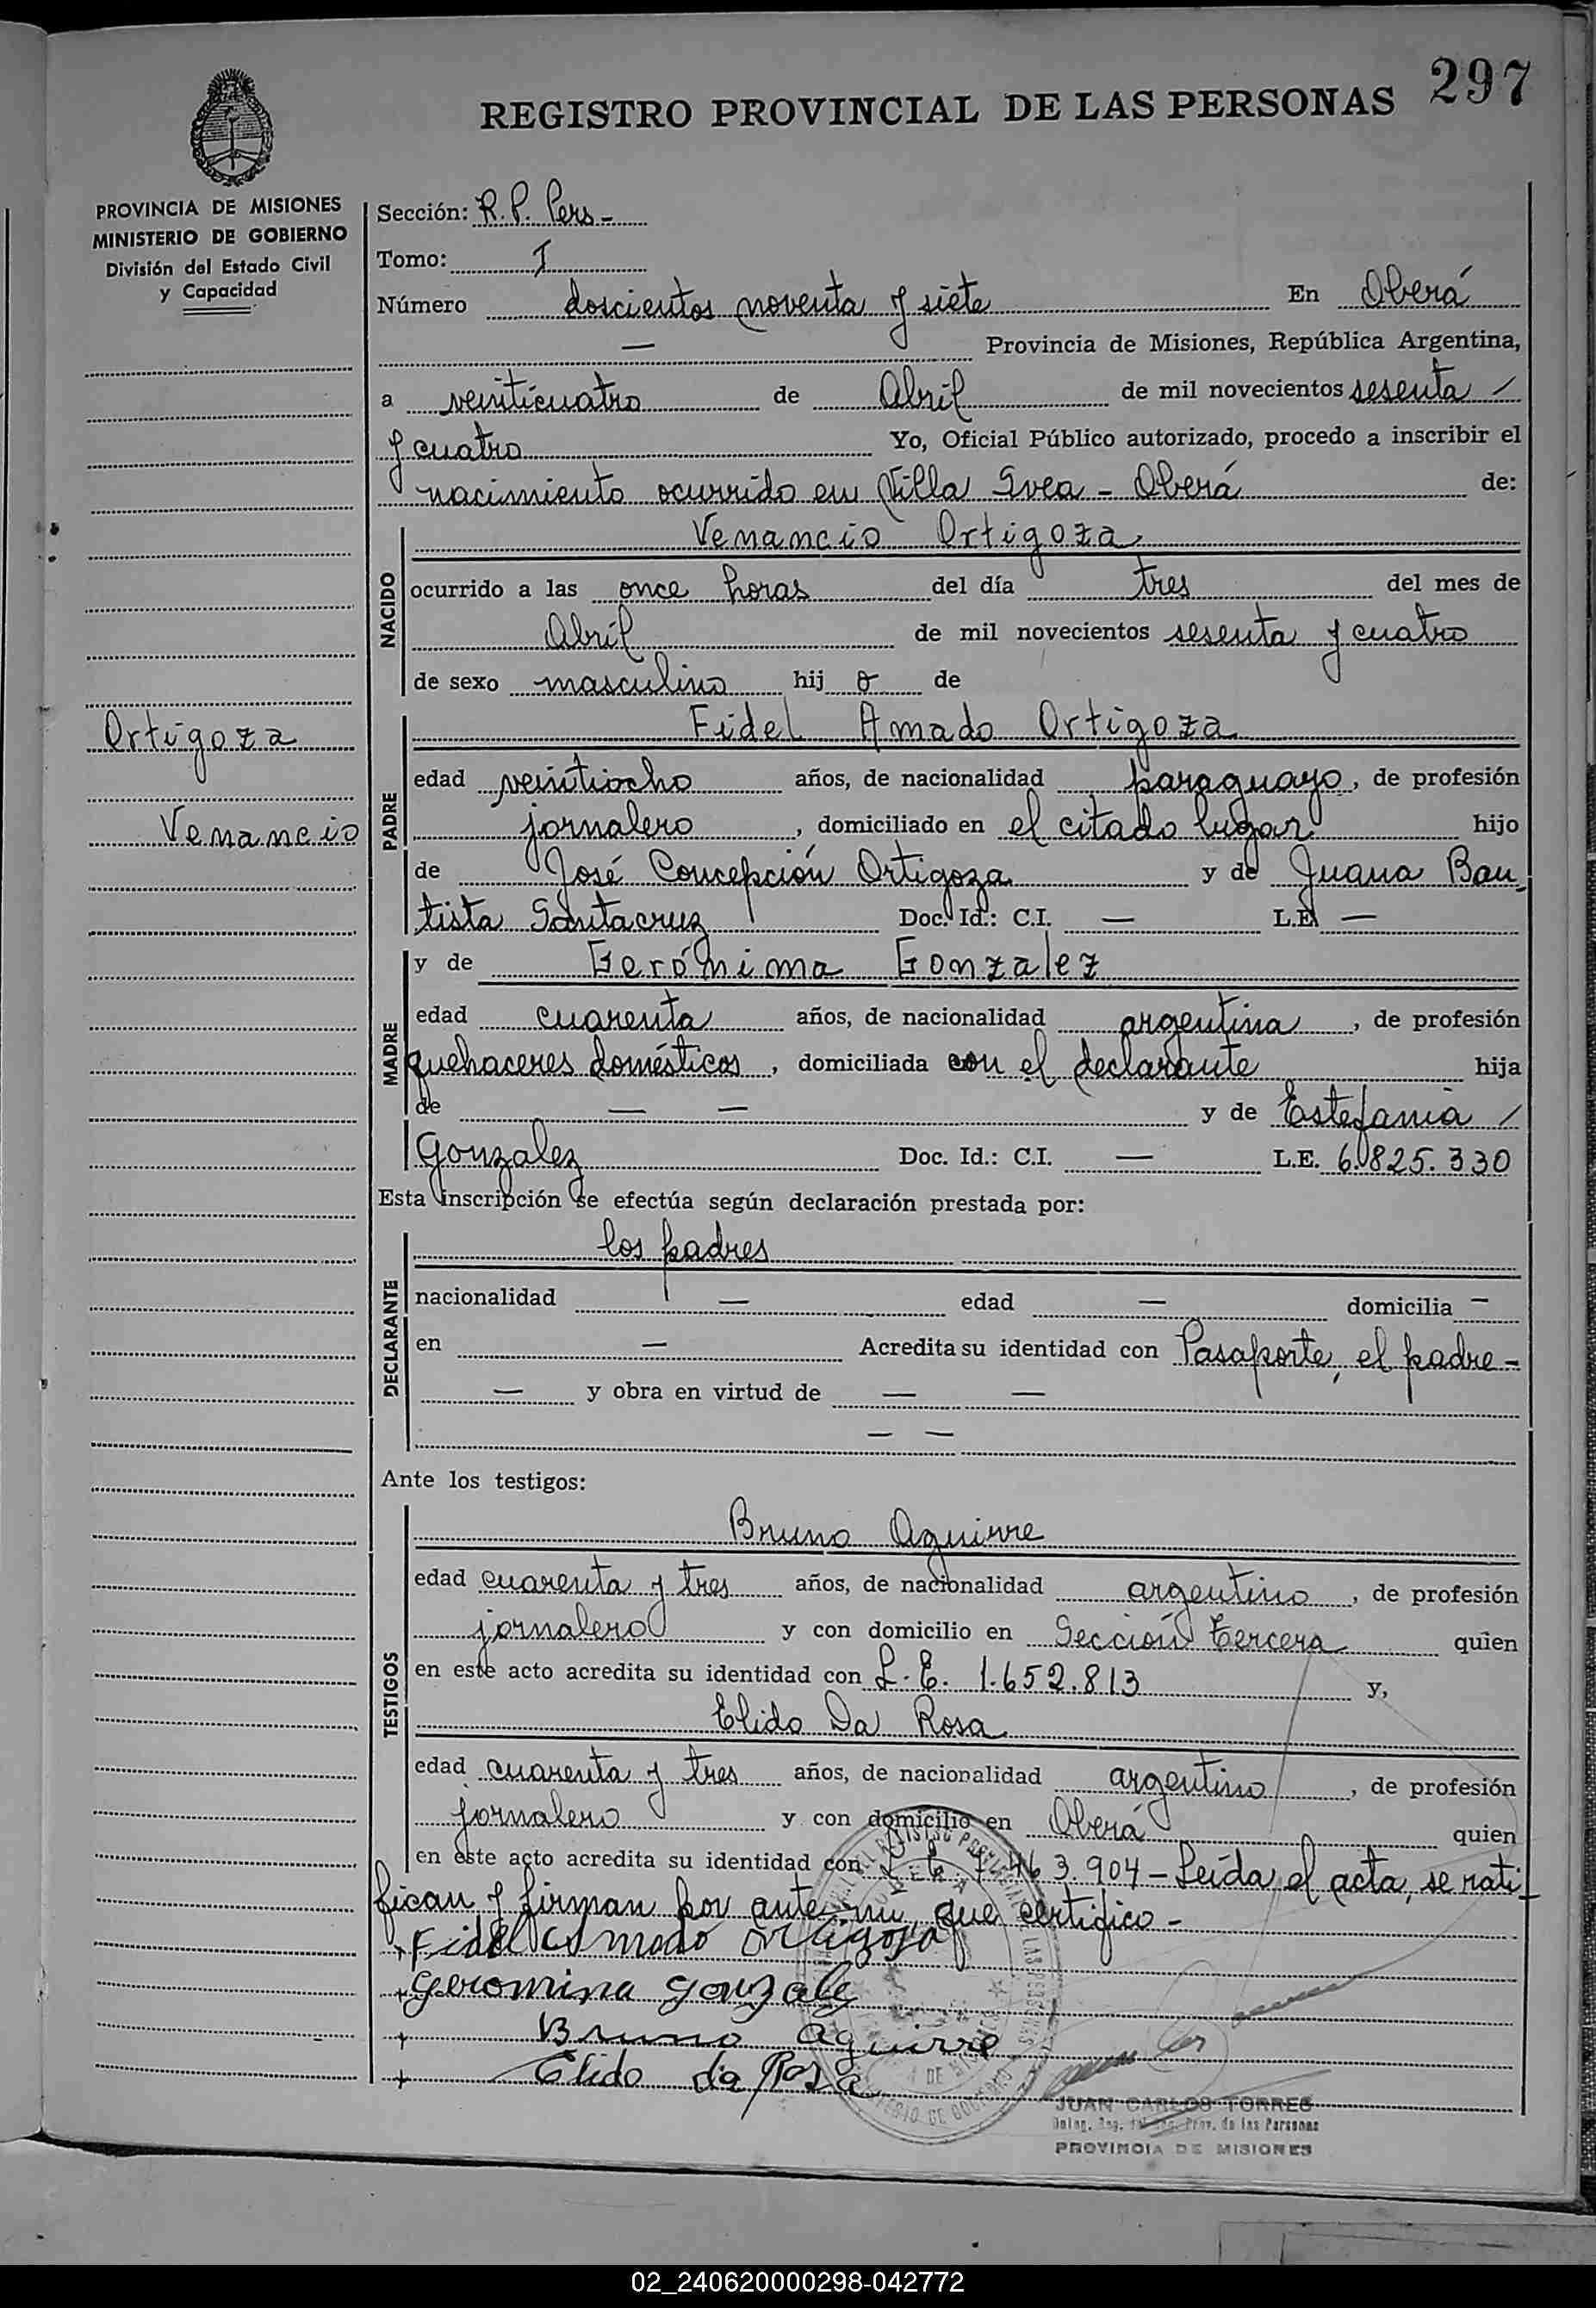 297
REGISTRO PROVINCIAL DE LAS PERSONAS
PROVINCIA DE MISIONES
MINISTERIO DE GOBIERNO
División del Estado Civil
y Capacidad
Ortigoza
Venancio
Sección: R.P. Pers-
Tomo: I
Número doscientos noventa y siete En Oberá
— Provincia de Misiones, República Argentina,
a veinticuatro de Abril de mil novecientos sesenta /
y cuatro Yo, Oficial Público autorizado, procedo a inscribir el
nacimiento ocurrido en Villa Svea - Oberá de:
NACIDO
Venancio Ortigoza
ocurrido a las once horas del día tres del mes de
Abril de mil novecientos sesenta y cuatro
de sexo masculino hij o de
PADRE
Fidel Amado Ortigoza
edad veintiocho años, de nacionalidad paraguayo, de profesión
jornalero, domiciliado en el citado lugar hijo
de José Concepción Ortigoza y de Juana Bau
tista Santacruz Doc. Id.: C.I. — L.E —
MADRE
y de Gerónima Gonzalez
edad cuarenta años, de nacionalidad argentina, de profesión
quehaceres domésticos, domiciliada con el declarante hija
de — — y de Estefania /
Gonzalez Doc. Id.: C.I. — L.E. 6.825.330
Esta inscripción se efectúa según declaración prestada por:
DECLARANTE
los padres
nacionalidad — edad — domicilia —
en — Acredita su identidad con Pasaporte, el padre-
— y obra en virtud de — —
— —
Ante los testigos:
TESTIGOS
Bruno Aguirre
edad cuarenta y tres años, de nacionalidad argentino, de profesión
jornalero y con domicilio en Sección tercera quien
en este acto acredita su identidad con L.E. 1.652.813 y,
Elido Da Rosa
edad cuarenta y tres años, de nacionalidad argentino, de profesión
jornalero y con domicilio en Oberá quien
en este acto acredita su identidad con 463.904 - Leída el acta, se rati
fican y firman por ante mi, que certifico -
+ Fidel Amado Ortigoza
+ Geromina Gonzale
+ Bruno Aguirre
+ Elido da Rosa
JUAN CARLOS TORRES
Prov. de las Personas
PROVINCIA DE MISIONES
02_240620000298-042772